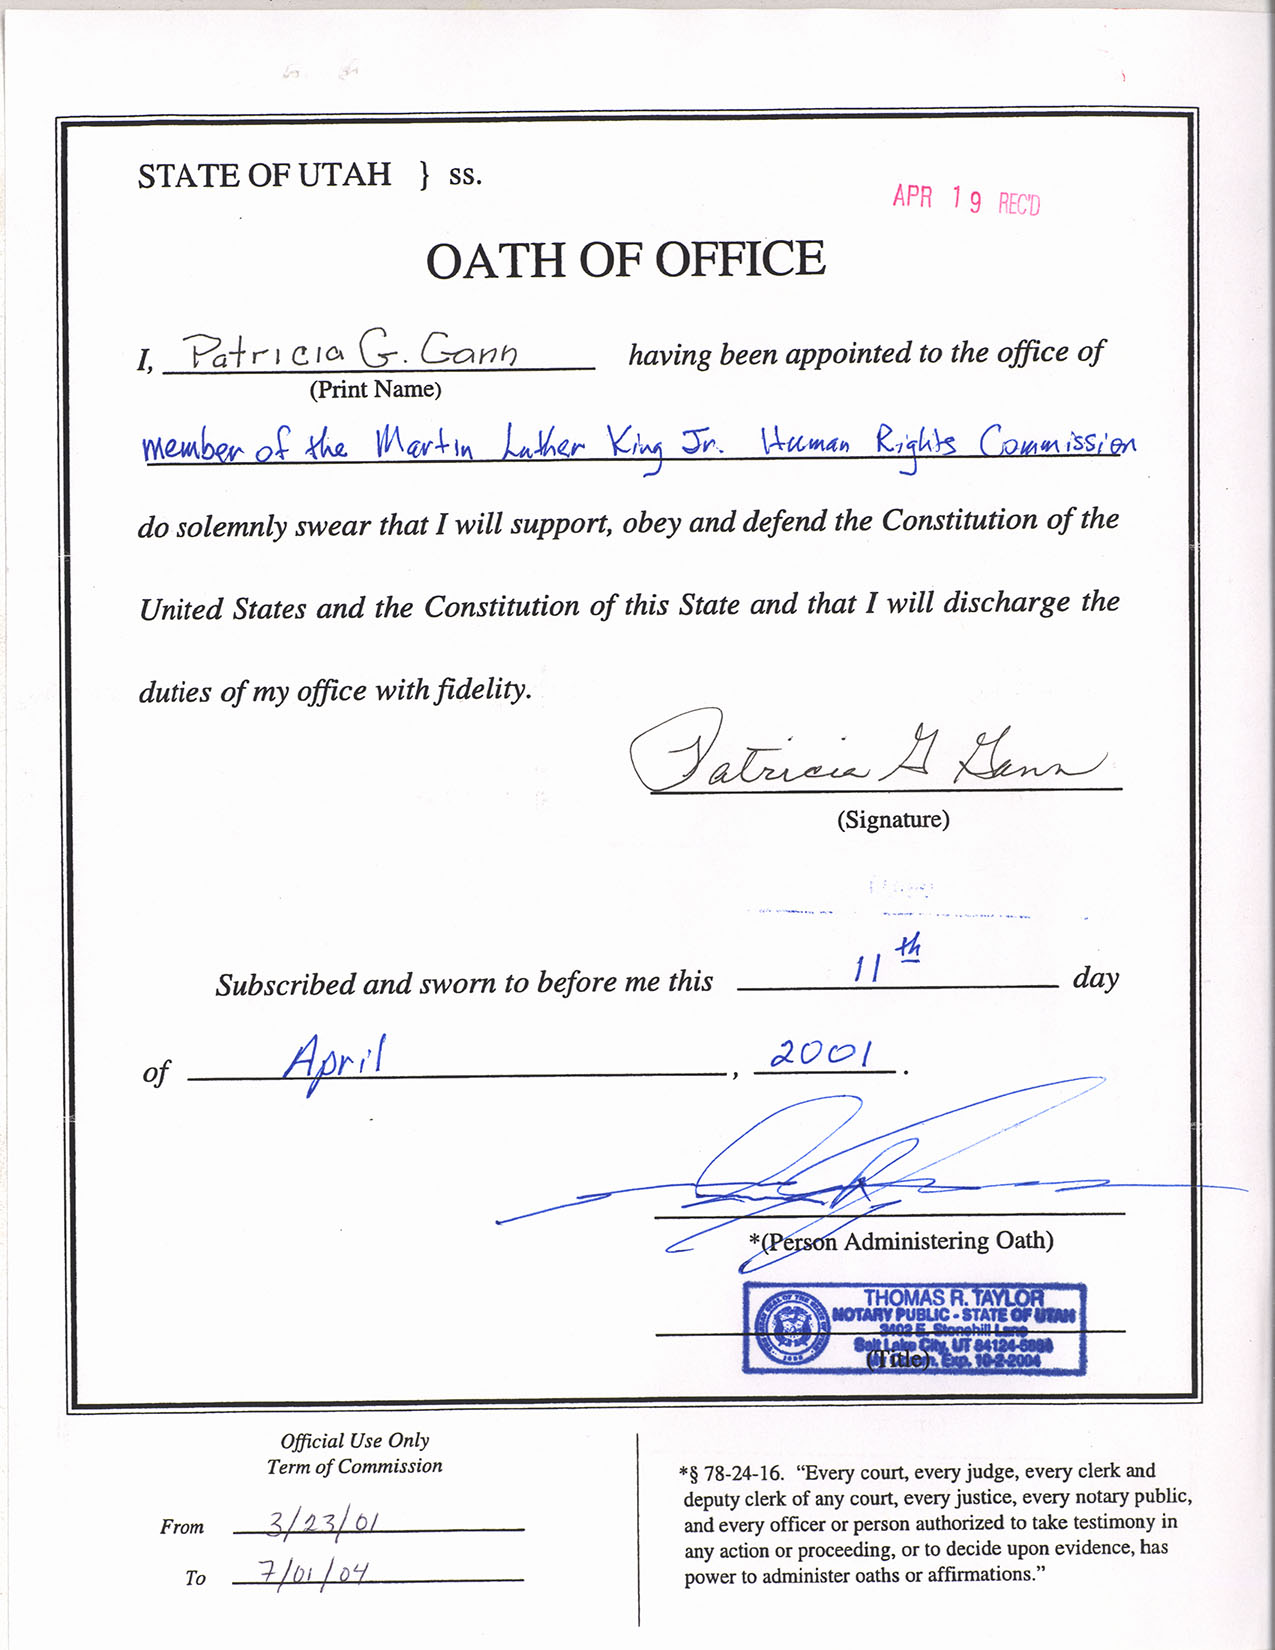 STATE OF UTAH } ss.
APR 19 REC'D
OATH OF OFFICE
I, Patricia G. Gann having been appointed to the office of
(Print Name)
member of the Martin Luther King Jr. Human Rights Commission
do solemnly swear that I will support, obey and defend the Constitution of the
United States and the Constitution of this State and that I will discharge the
duties of my office with fidelity.
Patricia G Gann
(Signature)
Subscribed and sworn to before me this 11th day
of April, 2001.
*(Person Administering Oath)
THOMAS R. TAYLOR
NOTARY PUBLIC - STATE OF UTAH
3402 E. Stonehill Lane
Salt Lake City, UT 84124-
(Title) Exp. 10-2-2004
Official Use Only
Term of Commission
From 3/23/01
To 7/01/04
*§ 78-24-16. “Every court, every judge, every clerk and
deputy clerk of any court, every justice, every notary public,
and every officer or person authorized to take testimony in
any action or proceeding, or to decide upon evidence, has
power to administer oaths or affirmations.”